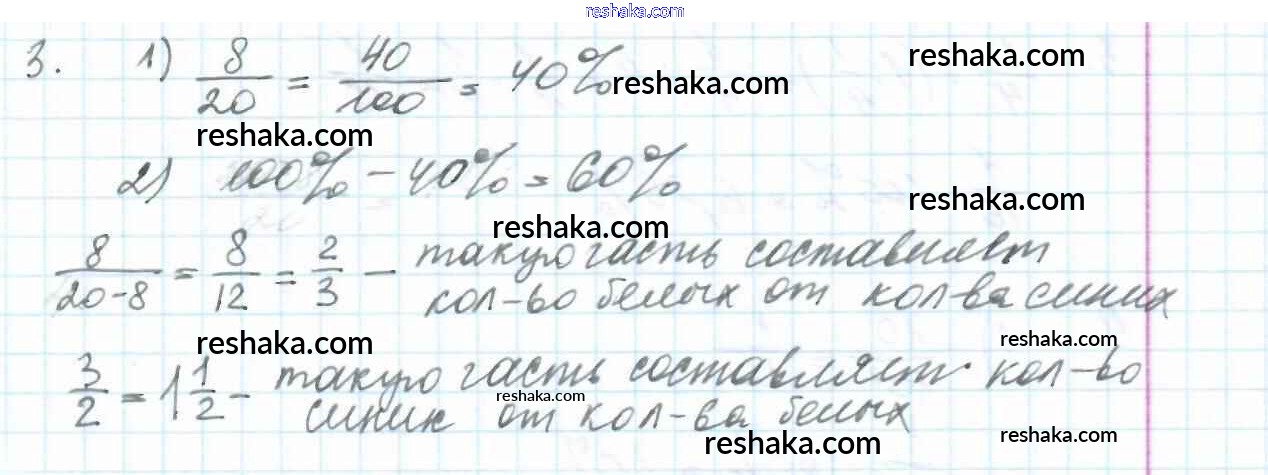 reshaka.com
3. 1) 8/20 = 40/100 = 40% reshaka.com
reshaka.com
reshaka.com
2) 100% - 40% = 60%
reshaka.com
reshaka.com
8/(20-8) = 8/12 = 2/3 - такую часть составляет
кол-во белых от кол-ва синих
reshaka.com
reshaka.com
3/2 = 1 1/2 - такую часть составляет кол-во
reshaka.com
синих от кол-ва белых
reshaka.com
reshaka.com